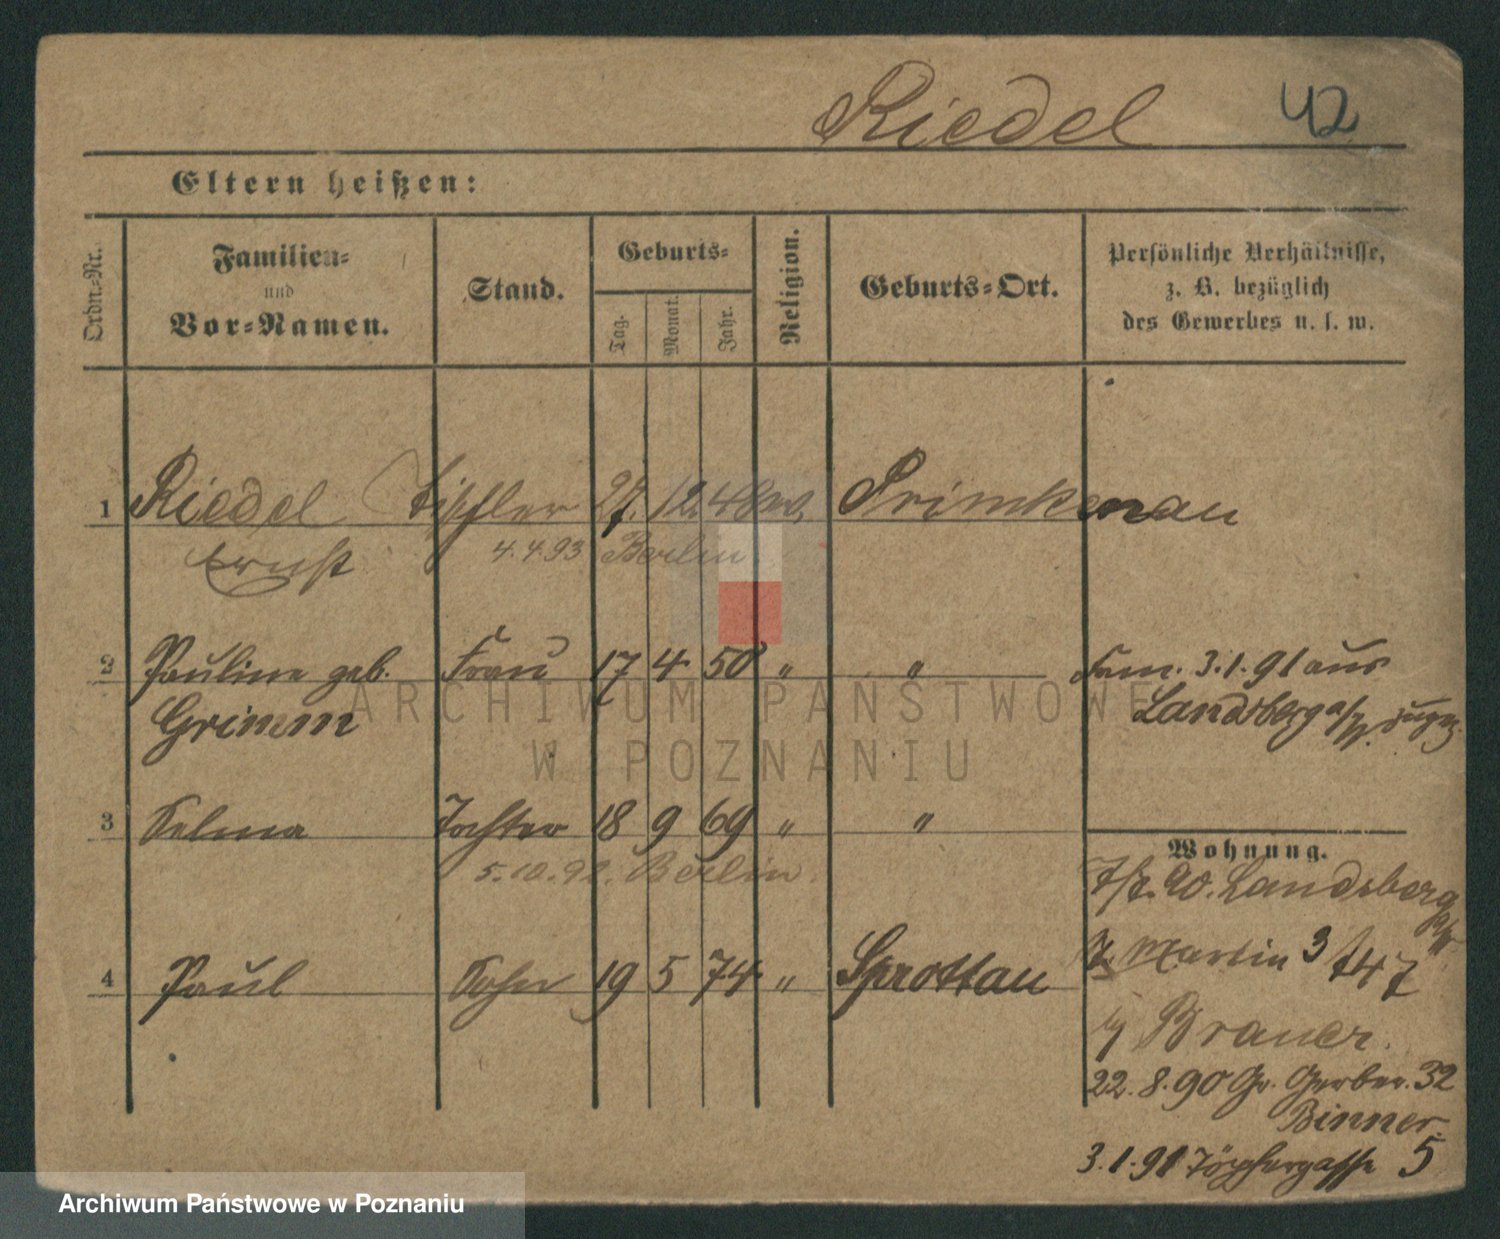 Riedel 42
Eltern heißen:
Ordn.-Nr.
Familien-
und
Vor-Namen.
Stand.
Geburts-
Tag.
Monat.
Jahr.
Religion.
Geburts-Ort.
Persönliche Verhältnisse,
z. B. bezüglich
des Gewerbes u. s. w.
1 Riedel Tischler 27. 12. 48 ev. Primkenau
Ernst 4.4.93 Berlin
2 Pauline geb. Frau 17 4 50 " " Fam. 3.1.91 aus
Grimm Landsberg a/W.
3 Selma Tochter 18 9 69 " "
5.10.92. Berlin.
Wohnung.
90. Landsberg
a/W
4 Paul Sohn 19 5 74 " Sprottau
Martin 3
Brauer.
22.8.90 Gr. Gerber. 32
Binner.
3.1.91 Töpfergasse 5
ARCHIWUM PAŃSTWOWE
W POZNANIU
Archiwum Państwowe w Poznaniu